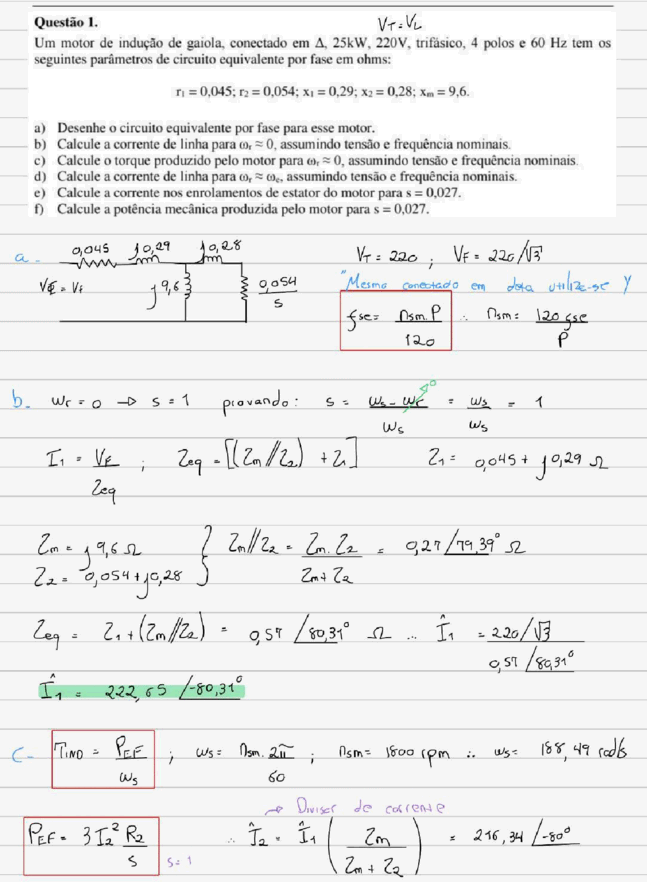 Questão 1.
V_T = V_L
Um motor de indução de gaiola, conectado em Δ, 25kW, 220V, trifásico, 4 polos e 60 Hz tem os
seguintes parâmetros de circuito equivalente por fase em ohms:
r₁ = 0,045; r₂ = 0,054; x₁ = 0,29; x₂ = 0,28; xₘ = 9,6.
a) Desenhe o circuito equivalente por fase para esse motor.
b) Calcule a corrente de linha para ωᵣ ≈ 0, assumindo tensão e frequência nominais.
c) Calcule o torque produzido pelo motor para ωᵣ ≈ 0, assumindo tensão e frequência nominais.
d) Calcule a corrente de linha para ωᵣ ≈ ωₑ, assumindo tensão e frequência nominais.
e) Calcule a corrente nos enrolamentos de estator do motor para s = 0,027.
f) Calcule a potência mecânica produzida pelo motor para s = 0,027.
a- 0,045 j0,29 j0,28
Vφ = Vf j9,6 0,054/s
V_T = 220 ; V_F = 220/√3
"Mesmo conectado em delta utiliza-se Y
fse = nsm.P/120 ∴ nsm = 120 fse/P
b- wr = 0 → s = 1 provando: s = (ws - wr)/ws = ws/ws = 1
0
I1 = VF/Zeq ; Zeq = [(Zm//Z2) + Z1] Z1 = 0,045 + j0,29 Ω
Zm = j9,6 Ω
Z2 = 0,054 + j0,28 } Zm//Z2 = Zm.Z2/(Zm+Z2) = 0,27 /79,39° Ω
Zeq = Z1 + (Zm//Z2) = 0,57 /80,31° Ω ... Î1 = (220/√3)/(0,57 /80,31°)
Î1 = 222,65 /-80,31°
C- TIND = PEF/ws ; ws = nsm.2π/60 ; nsm = 1800 rpm ∴ ws = 188,49 rad/s
→ Divisor de corrente
PEF = 3 I2² R2/s s=1 ∴ Î2 = Î1 (Zm/(Zm + Z2)) = 216,34 /-80°